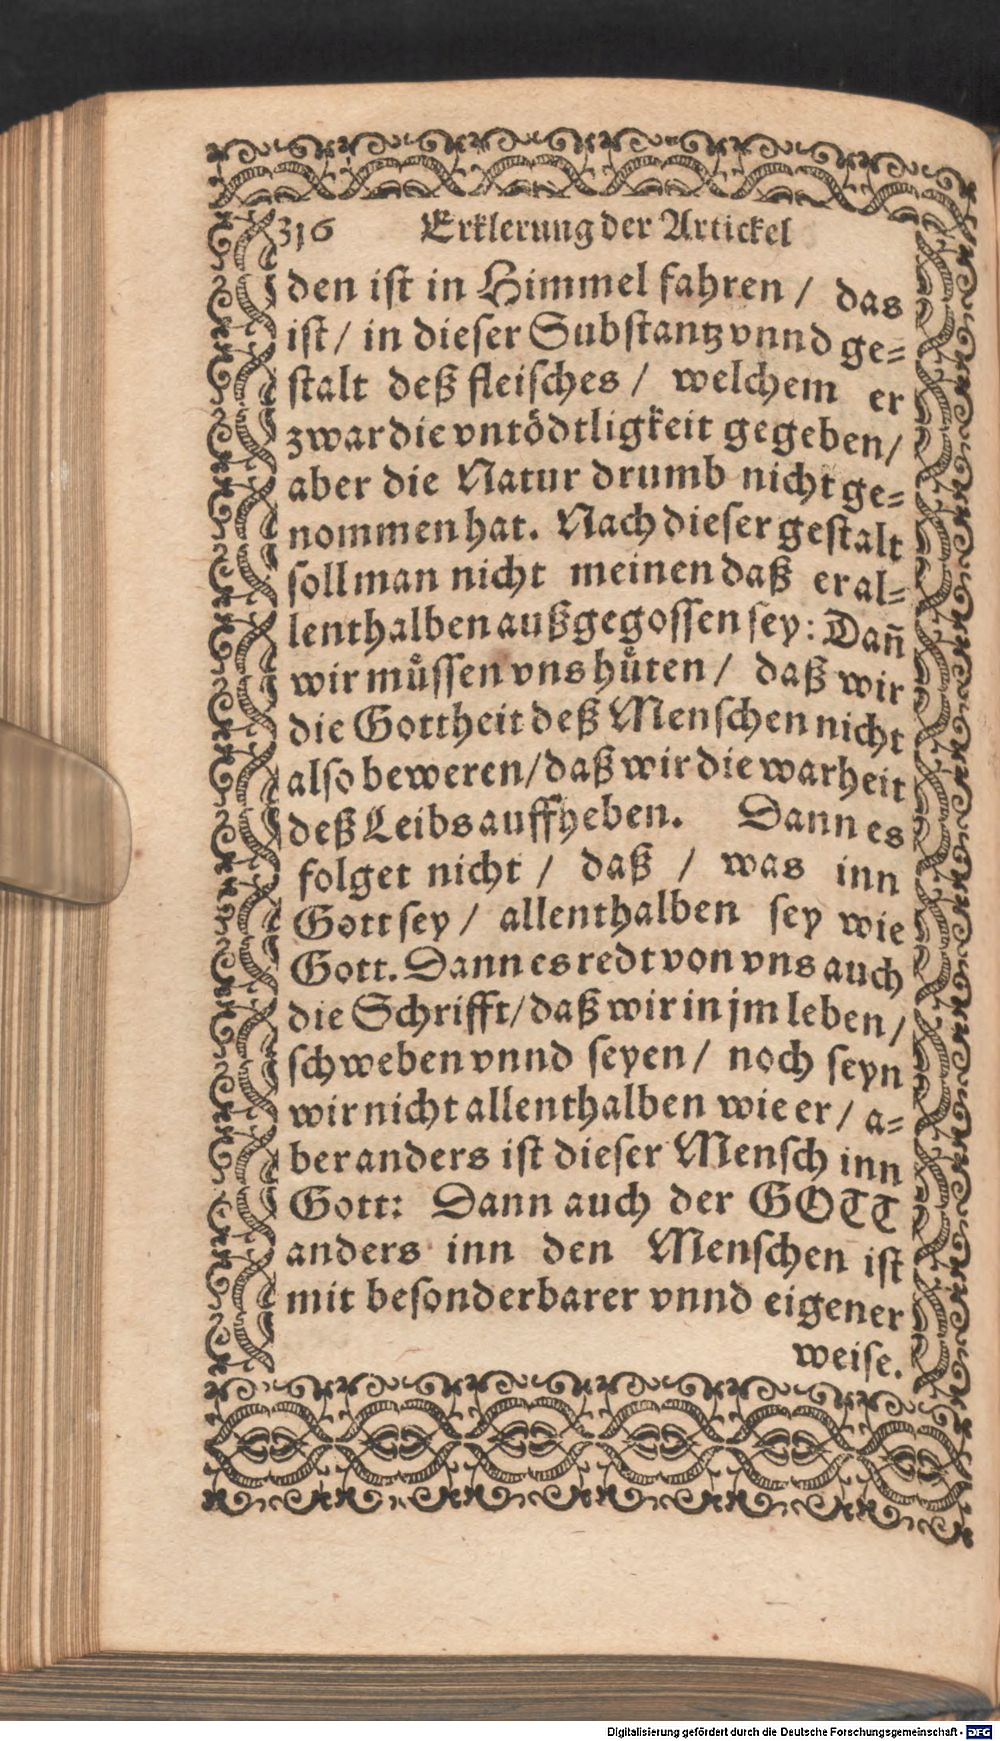 316 Erklerung der Artickel
den ist in Himmel fahren / das
ist / in dieser Substantz vnnd ge⸗
stalt deß fleisches / welchem er
zwar die vntödtligkeit gegeben /
aber die Natur drumb nicht ge⸗
nommen hat. Nach dieser gestalt
soll man nicht meinen daß er al⸗
lenthalben außgegossen sey: Dañ
wir muͤssen vns huͤten / daß wir
die Gottheit deß Menschen nicht
also beweren / daß wir die warheit
deß Leibs auffheben. Dann es
folget nicht / daß / was inn
Gott sey / allenthalben sey wie
Gott. Dann es redt von vns auch
die Schrifft / daß wir in jm leben /
schweben vnnd seyen / noch seyn
wir nicht allenthalben wie er / a⸗
ber anders ist dieser Mensch inn
Gott: Dann auch der GOTT
anders inn den Menschen ist
mit besonderbarer vnnd eigener
weise.
Digitalisierung gefördert durch die Deutsche Forschungsgemeinschaft - DFG